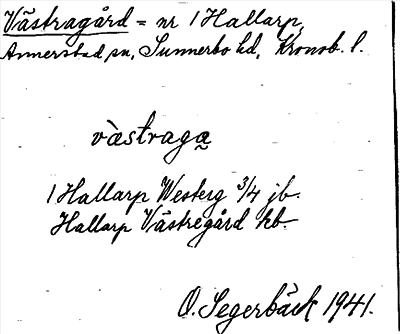 Västragård = nr 1 Hallarp,
Annerstad sn, Sunnerbo hd, Kronob. l.
västraga̰
1 Hallarp Westerg 3/4 jb.
Hallarp Västregård kb.
O. Segerbäck 1941.